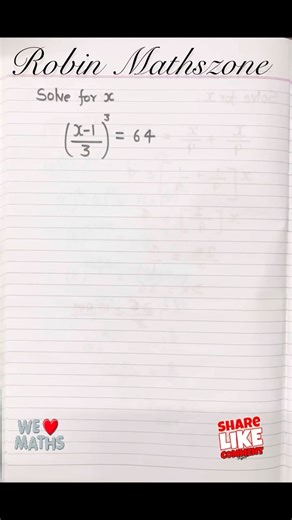 Robin Mathszone
Solve for x
(x-1/3)³ = 64
WE❤
MATHS
SHARE
LIKE
COMMENT